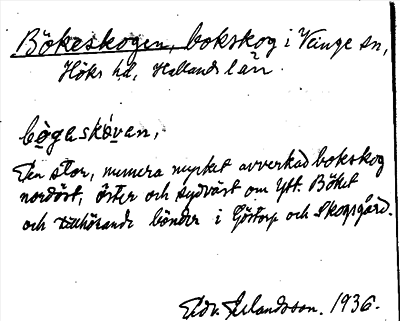 Bökeskogen, bokskog i Veinge sn,
Höks hd, Hallands län.
bø̀gaskòvan,
En stor, numera mycket avverkad bokskog
nordöst, öster och sydväst om Ytt. Böket
och tillhörande bönder i Göstorp och Skogsgård.
Edv. Erlandsson. 1936.